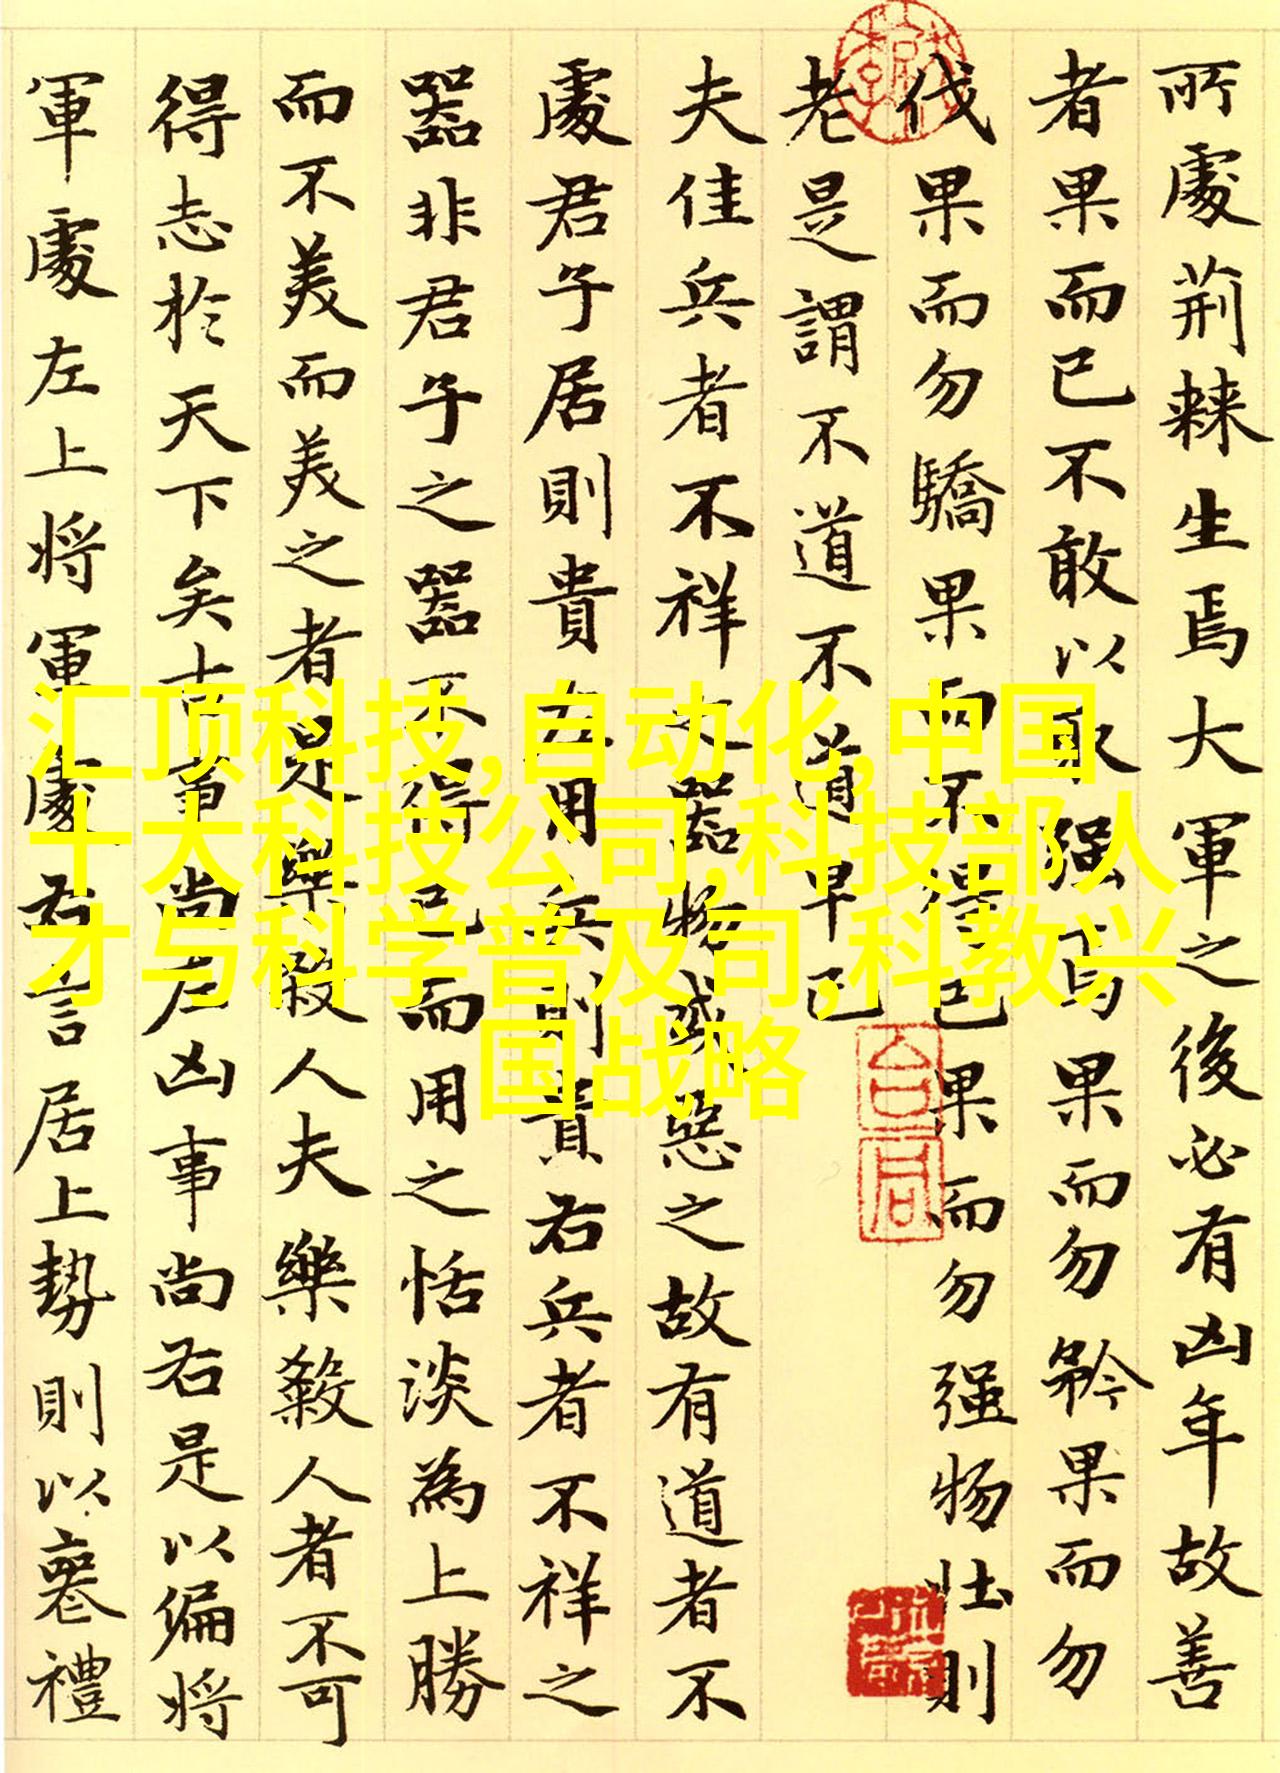 所處荊棘生焉大軍之後必有凶年故善
者果而已不敢以取强果而勿矜果而勿
伐果而勿驕果而不得已果而勿强物壯則
老是謂不道不道早已
夫佳兵者不祥之器物或惡之故有道者不
處君子居則貴左用兵則貴右兵者不祥之
器非君子之器不得已而用之恬淡為上勝
而不美而美之者是樂殺人夫樂殺人者不可
得志於天下矣吉事尚左凶事尚右是以偏將
軍處左上將軍處右言居上勢則以喪禮
汇顶科技,自动化,中国
十大科技公司,科技部人
才与科学普及司,科教兴
国战略